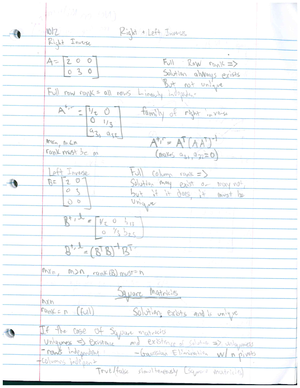 10/2 Right + Left Inverses
Right Inverse
A = [2 0 0 Full Row rank =>
0 3 0] Solution always exists
But not unique
Full row rank = all rows linearly independent
A^-1,r = [1/2 0 family of right inverse
0 1/3
a31 a32]
A^-1,r = A^T (AA^T)^-1
rank must be m
Left Inverse Full column rank =>
B = [2 0 Solution may exist or may not,
0 3 but if it does, it must be
0 0] unique
B^-1,l = [1/2 0
0 1/3]
B^-1,l = (B^T B)^-1 B^T
m>n, rank(B) must = n
Square Matrices
m=n
rank = n (full) Solution exists and is unique
If the case of Square matrices
Uniqueness => Existence and existence of solution => uniqueness
- rows independent - Gaussian Elimination w/ n pivots
- columns independent
True/false simultaneously (square matrices)